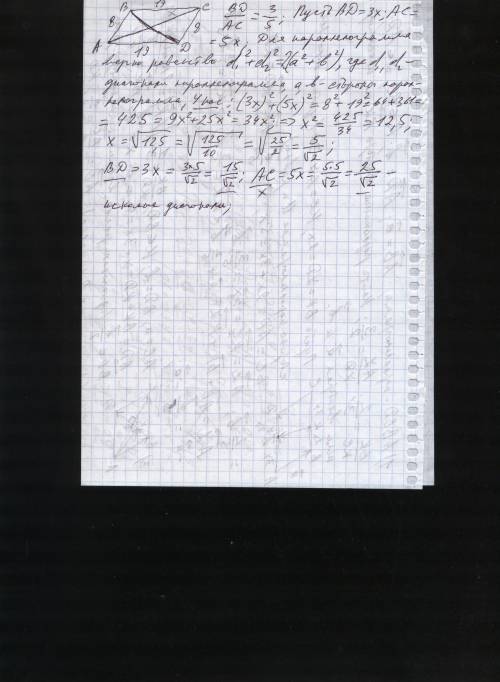 B 19 C
8 8
A 19 D
BD/AC = 3/5; Пусть BD=3x, AC=
=5x. Для параллелограмма
верно равенство d₁²+d₂²=2(a²+b²), где d₁ d₂-
диагонали параллелограмма, a в- стороны парал-
лелограмма, У нас: (3x)²+(5x)²=8²+19²=64+361=
=425=9x²+25x²=34x²; ⇒ x²=425/34=12,5;
x=√12,5=√125/10=√25/2=5/√2;
BD=3x=3×5/√2=15/√2; AC=5x=5·5/√2=25/√2 -
искомые диагонали;